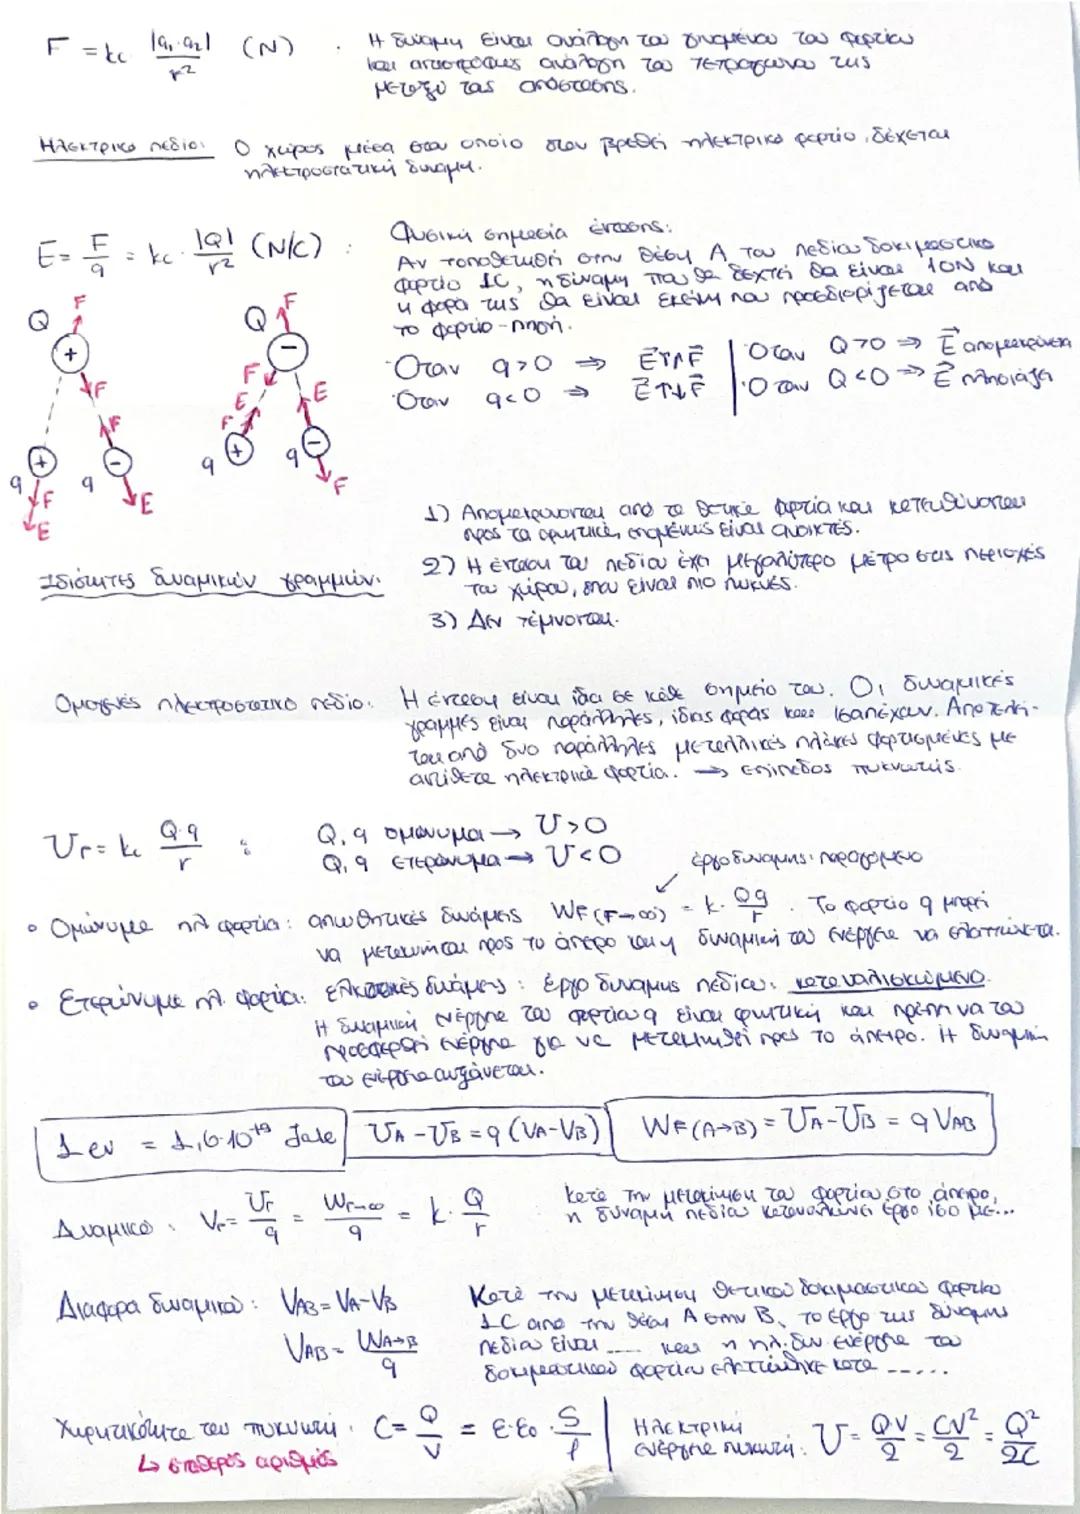 F = kc |q₁·q₂| / r² (N) . Η δύναμη είναι ανάλογη του γινομένου του φορτίου
και αντιστρόφως ανάλογη του τετραγώνου της
μεταξύ τας απόστασης.
Ηλεκτρικο πεδίο: Ο χώρος μέσα στον οποίο όταν βρεθεί ηλεκτρικο φορτίο, δέχεται
ηλεκτροστατική δύναμη.
E = F/q = kc · |Q|/r² (N/C) :
Φυσική σημασία έντασης:
Αν τοποθετηθή στην θέση Α του πεδίου δοκιμαστικο
φορτίο 1C, η δύναμη που θα δεχτεί θα είναι 10N και
η φορά της θα είναι εκείνη που προσδιορίζεται από
το φορτίο-πηγή.
Όταν q>0 ⇒ E↑↑F | Όταν Q>0 ⇒ E απομακρύνεται
Όταν q<0 ⇒ E↑↓F | Όταν Q<0 ⇒ E πλησιάζει
Q F Q F
+ −
F F E
F E F
+ − + −
q q q q
F E E F
1) Απομακρύνονται από τα θετικά φορτία και κατευθύνονται
προς τα αρνητικά, επομένως είναι ανοικτές.
Ιδιότητες δυναμικών γραμμών:
2) Η ένταση του πεδίου έχει μεγαλύτερο μέτρο στις περιοχές
του χώρου, όπου είναι πιο πυκνές.
3) Δεν τέμνονται.
Ομογενές ηλεκτροστατικό πεδίο: Η ένταση είναι ίδια σε κάθε σημείο του. Οι δυναμικές
γραμμές είναι παράλληλες, ίδιας φοράς και ισαπέχουν. Αποτελεί-
ται από δυο παράλληλες μεταλλικές πλάκες φορτισμένες με
αντίθετα ηλεκτρικά φορτία. → επίπεδος πυκνωτής.
Ur = kc Q·q / r : Q, q ομώνυμα → U>0
Q, q ετερώνυμα → U<0
έργο δύναμης: παραγόμενο
• Ομώνυμα ηλ φορτία: απωθητικές δυνάμεις WF(Γ→∞) = k · Qq/r . Το φορτίο q μπορεί
να μετακινηθεί προς το άπειρο και η δυναμική του ενέργεια να ελαττώνεται.
• Ετερώνυμα ηλ. φορτία: ελκτικές δυνάμεις: έργο δύναμης πεδίου: καταναλισκόμενο.
Η δυναμική ενέργεια του φορτίου q είναι αρνητική και πρέπει να του
προσφερθεί ενέργεια για να μετακινηθεί προς το άπειρο. Η δυναμική
του ενέργεια αυξάνεται.
1 ev = 1,6·10⁻¹⁹ Joule UA - UB = q (VA-VB) WF(A→B) = UA-UB = q VAB
Δυναμικό: Vr = Ur/q = Wr→∞/q = k · Q/r
Κατά την μετακίνηση του φορτίου στο άπειρο,
η δύναμη πεδίου καταναλώνει έργο ίσο με...
Διαφορά δυναμικού: VAB = VA-VB
VAB = WA→B / q
Κατά την μετακίνηση θετικού δοκιμαστικού φορτίου
1C από την θέση Α στην Β, το έργο της δύναμης
πεδίου είναι .... και η ηλ. δυν ενέργεια του
δοκιμαστικού φορτίου ελαττώθηκε κατά ......
Χωρητικότητα του πυκνωτή: C = Q/V = ε·ε₀ · S/l
↳ σταθερός αριθμός
Ηλεκτρική
ενέργεια πυκνωτή: U = QV/2 = CV²/2 = Q²/2C